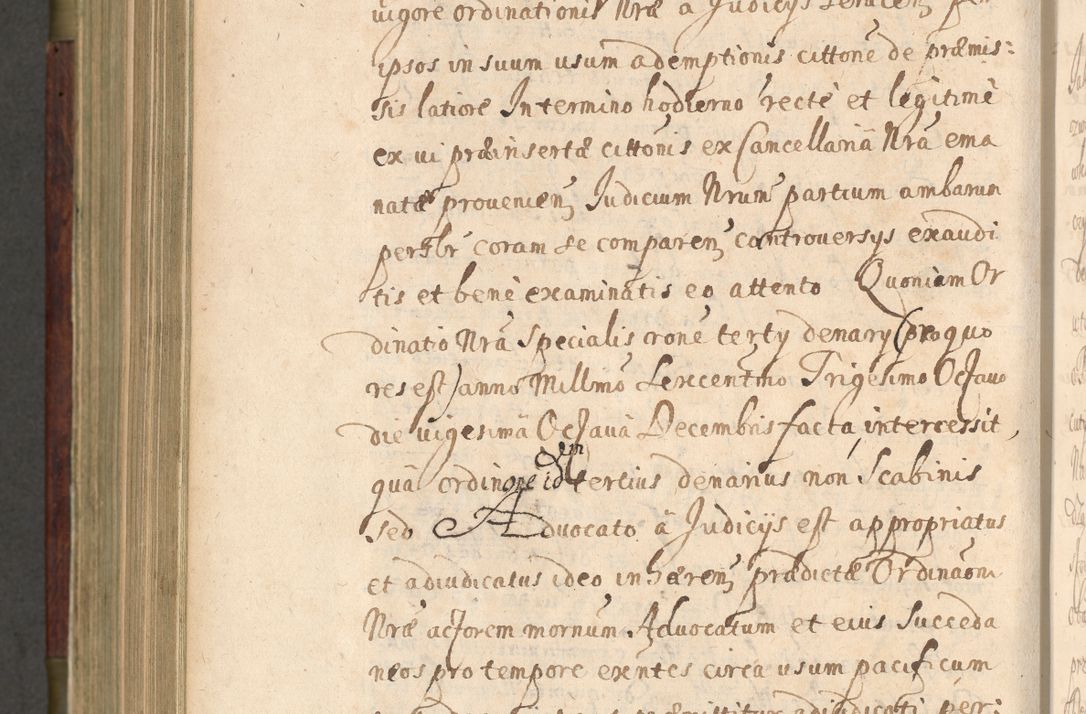 vigore ordinationis Nræ a Judicys
ipsos in suum usum ademptionis cittone de præmis:
sis latiore In termino hodierno recte et legitime
ex vi præinsertæ cittonis ex Cancellaria Nra ema
natæ provenien Judicium Nrum partium ambarum
persbr coram se comparen controversys exaudi
tis et bene examinatis eo attento Quoniam Or
dinatio Nra specialis rone terty denary (pro quo
res est) anno Millmo Sexcentmo Trigesimo Octavo
die vigesima Octava Decembris facta intercessit,
qua ordinone idem tertius denarius non Scabinis
sed Advocato a Judicijs est appropriatus
et adiudicatus ideo inhæren prædictæ Ordinaoni
Nræ actorem mornum Advocatum et eius Succeda
neos pro tempore exntes circa usum pacificum
adiudicati peri